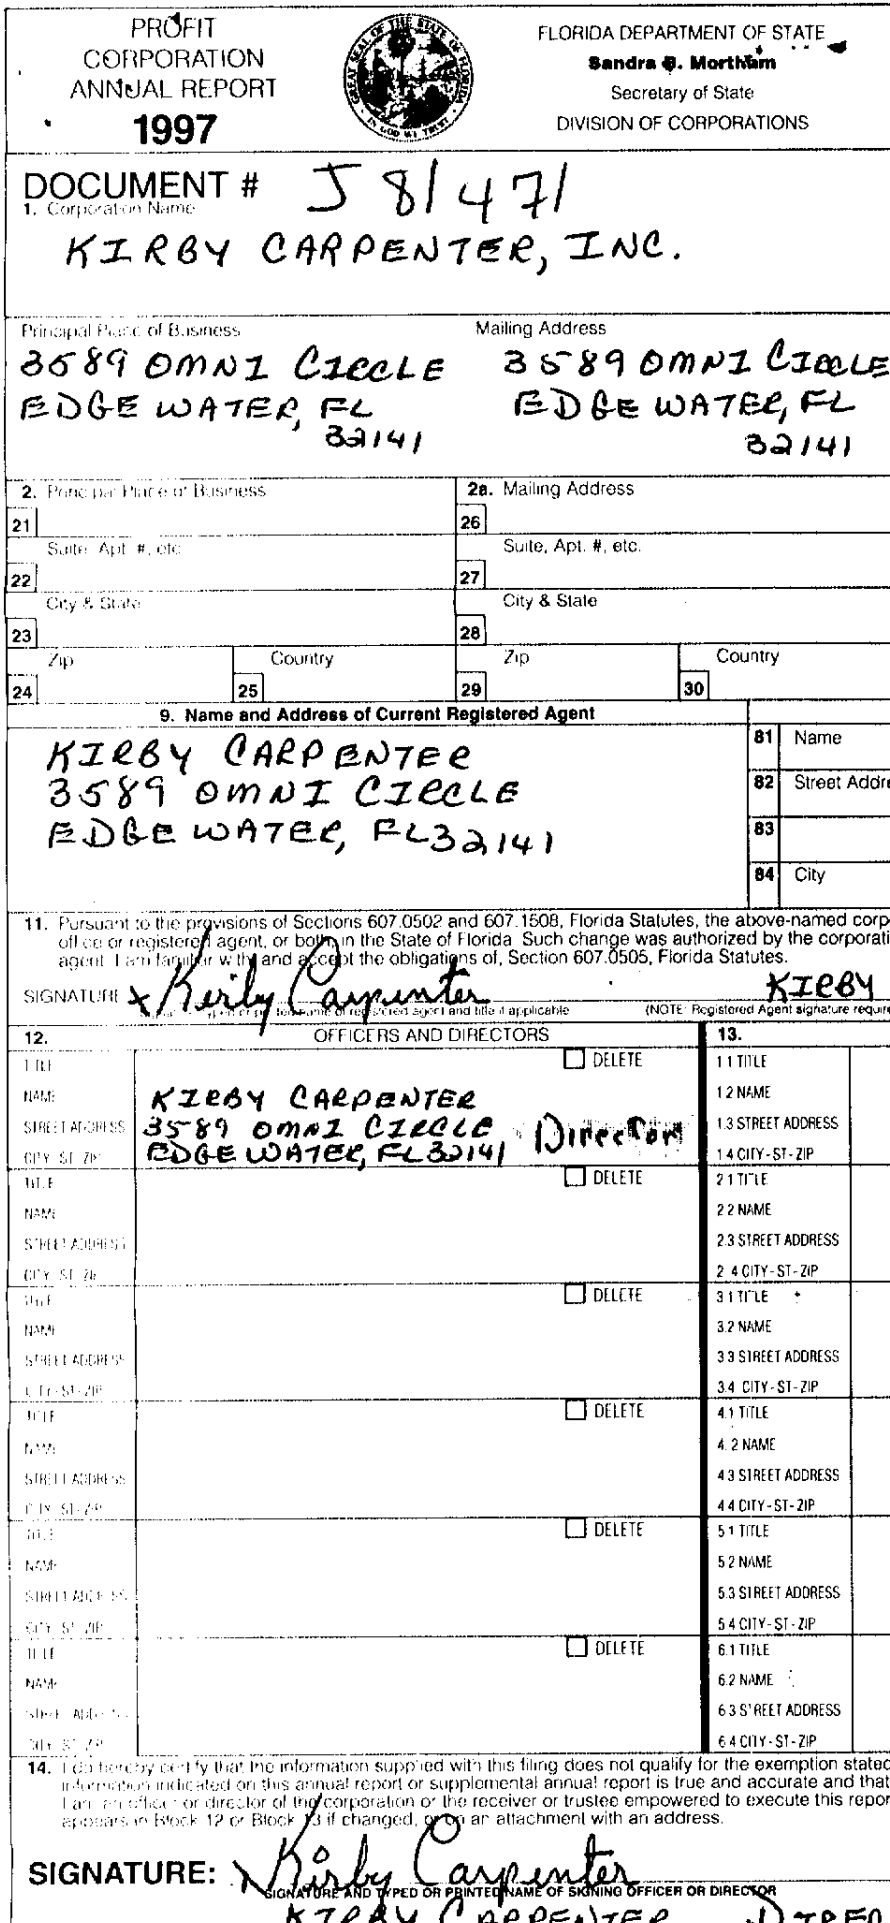 PROFIT
CORPORATION
ANNUAL REPORT
1997
GREAT SEAL OF THE STATE OF FLORIDA
IN GOD WE TRUST
FLORIDA DEPARTMENT OF STATE
Sandra B. Mortham
Secretary of State
DIVISION OF CORPORATIONS
DOCUMENT # J81471
1. Corporation Name
KIRBY CARPENTER, INC.
Principal Place of Business
3589 OMNI CIRCLE
EDGEWATER, FL
32141
Mailing Address
3589 OMNI CIRCLE
EDGEWATER, FL
32141
2. Principal Place of Business
21
Suite, Apt. #, etc.
22
City & State
23
Zip
24
Country
25
2a. Mailing Address
26
Suite, Apt. #, etc.
27
City & State
28
Zip
29
Country
30
9. Name and Address of Current Registered Agent
KIRBY CARPENTER
3589 OMNI CIRCLE
EDGEWATER, FL 32141
81 Name
82 Street Addre
83
84 City
11. Pursuant to the provisions of Sections 607.0502 and 607.1508, Florida Statutes, the above-named corp
office or registered agent, or both, in the State of Florida. Such change was authorized by the corporati
agent. I am familiar with, and accept the obligations of, Section 607.0505, Florida Statutes.
SIGNATURE X Kirby Carpenter KIRBY
name of registered agent and title if applicable (NOTE: Registered Agent signature require
12. OFFICERS AND DIRECTORS 13.
TITLE DELETE 1.1 TITLE
NAME KIRBY CARPENTER 1.2 NAME
STREET ADDRESS 3589 OMNI CIRCLE Director 1.3 STREET ADDRESS
CITY-ST-ZIP EDGEWATER, FL 32141 1.4 CITY-ST-ZIP
TITLE DELETE 2.1 TITLE
NAME 2.2 NAME
STREET ADDRESS 2.3 STREET ADDRESS
CITY-ST-ZIP 2.4 CITY-ST-ZIP
TITLE DELETE 3.1 TITLE
NAME 3.2 NAME
STREET ADDRESS 3.3 STREET ADDRESS
CITY-ST-ZIP 3.4 CITY-ST-ZIP
TITLE DELETE 4.1 TITLE
NAME 4.2 NAME
STREET ADDRESS 4.3 STREET ADDRESS
CITY-ST-ZIP 4.4 CITY-ST-ZIP
TITLE DELETE 5.1 TITLE
NAME 5.2 NAME
STREET ADDRESS 5.3 STREET ADDRESS
CITY-ST-ZIP 5.4 CITY-ST-ZIP
TITLE DELETE 6.1 TITLE
NAME 6.2 NAME
STREET ADDRESS 6.3 STREET ADDRESS
CITY-ST-ZIP 6.4 CITY-ST-ZIP
14. I do hereby certify that the information supplied with this filing does not qualify for the exemption stated
information indicated on this annual report or supplemental annual report is true and accurate and that
I am an officer or director of the corporation or the receiver or trustee empowered to execute this repor
appears in Block 12 or Block 13 if changed, or on an attachment with an address.
SIGNATURE: X Kirby Carpenter
SIGNATURE AND TYPED OR PRINTED NAME OF SIGNING OFFICER OR DIRECTOR
KIRBY CARPENTER DIREC